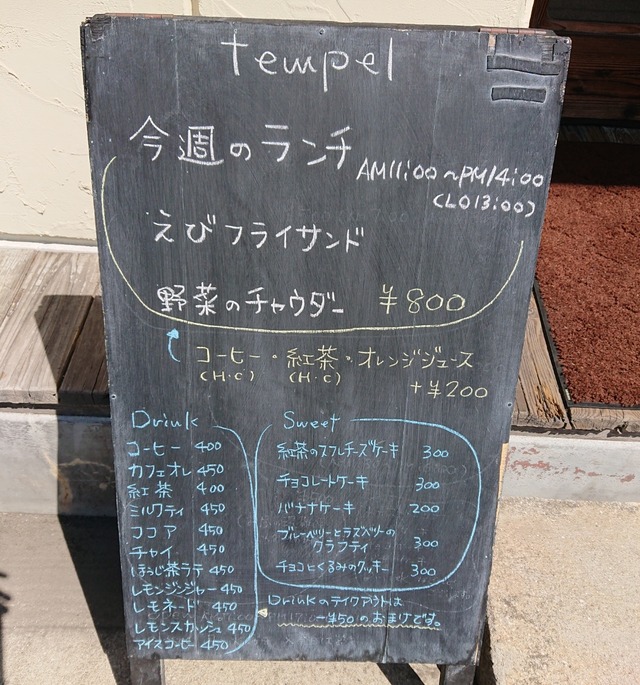 tempel
今週のランチ
AM11:00~PM14:00
(LO13:00)
えびフライサンド
野菜のチャウダー ¥800
コーヒー・紅茶・オレンジジュース
(H・C) (H・C)
+¥200
Drink
コーヒー 400
カフェオレ 450
紅茶 400
ミルクティ 450
ココア 450
チャイ 450
ほうじ茶ラテ 450
レモンジンジャー 450
レモネード 450
レモンスカッシュ 450
アイスコーヒー 450
Sweet
紅茶のスフレチーズケーキ 300
チョコレートケーキ 300
バナナケーキ 200
ブルーベリーとラズベリーの
クラフティ 300
チョコとくるみのクッキー 300
Drinkのテイクアウトは
-¥50のおまけです。